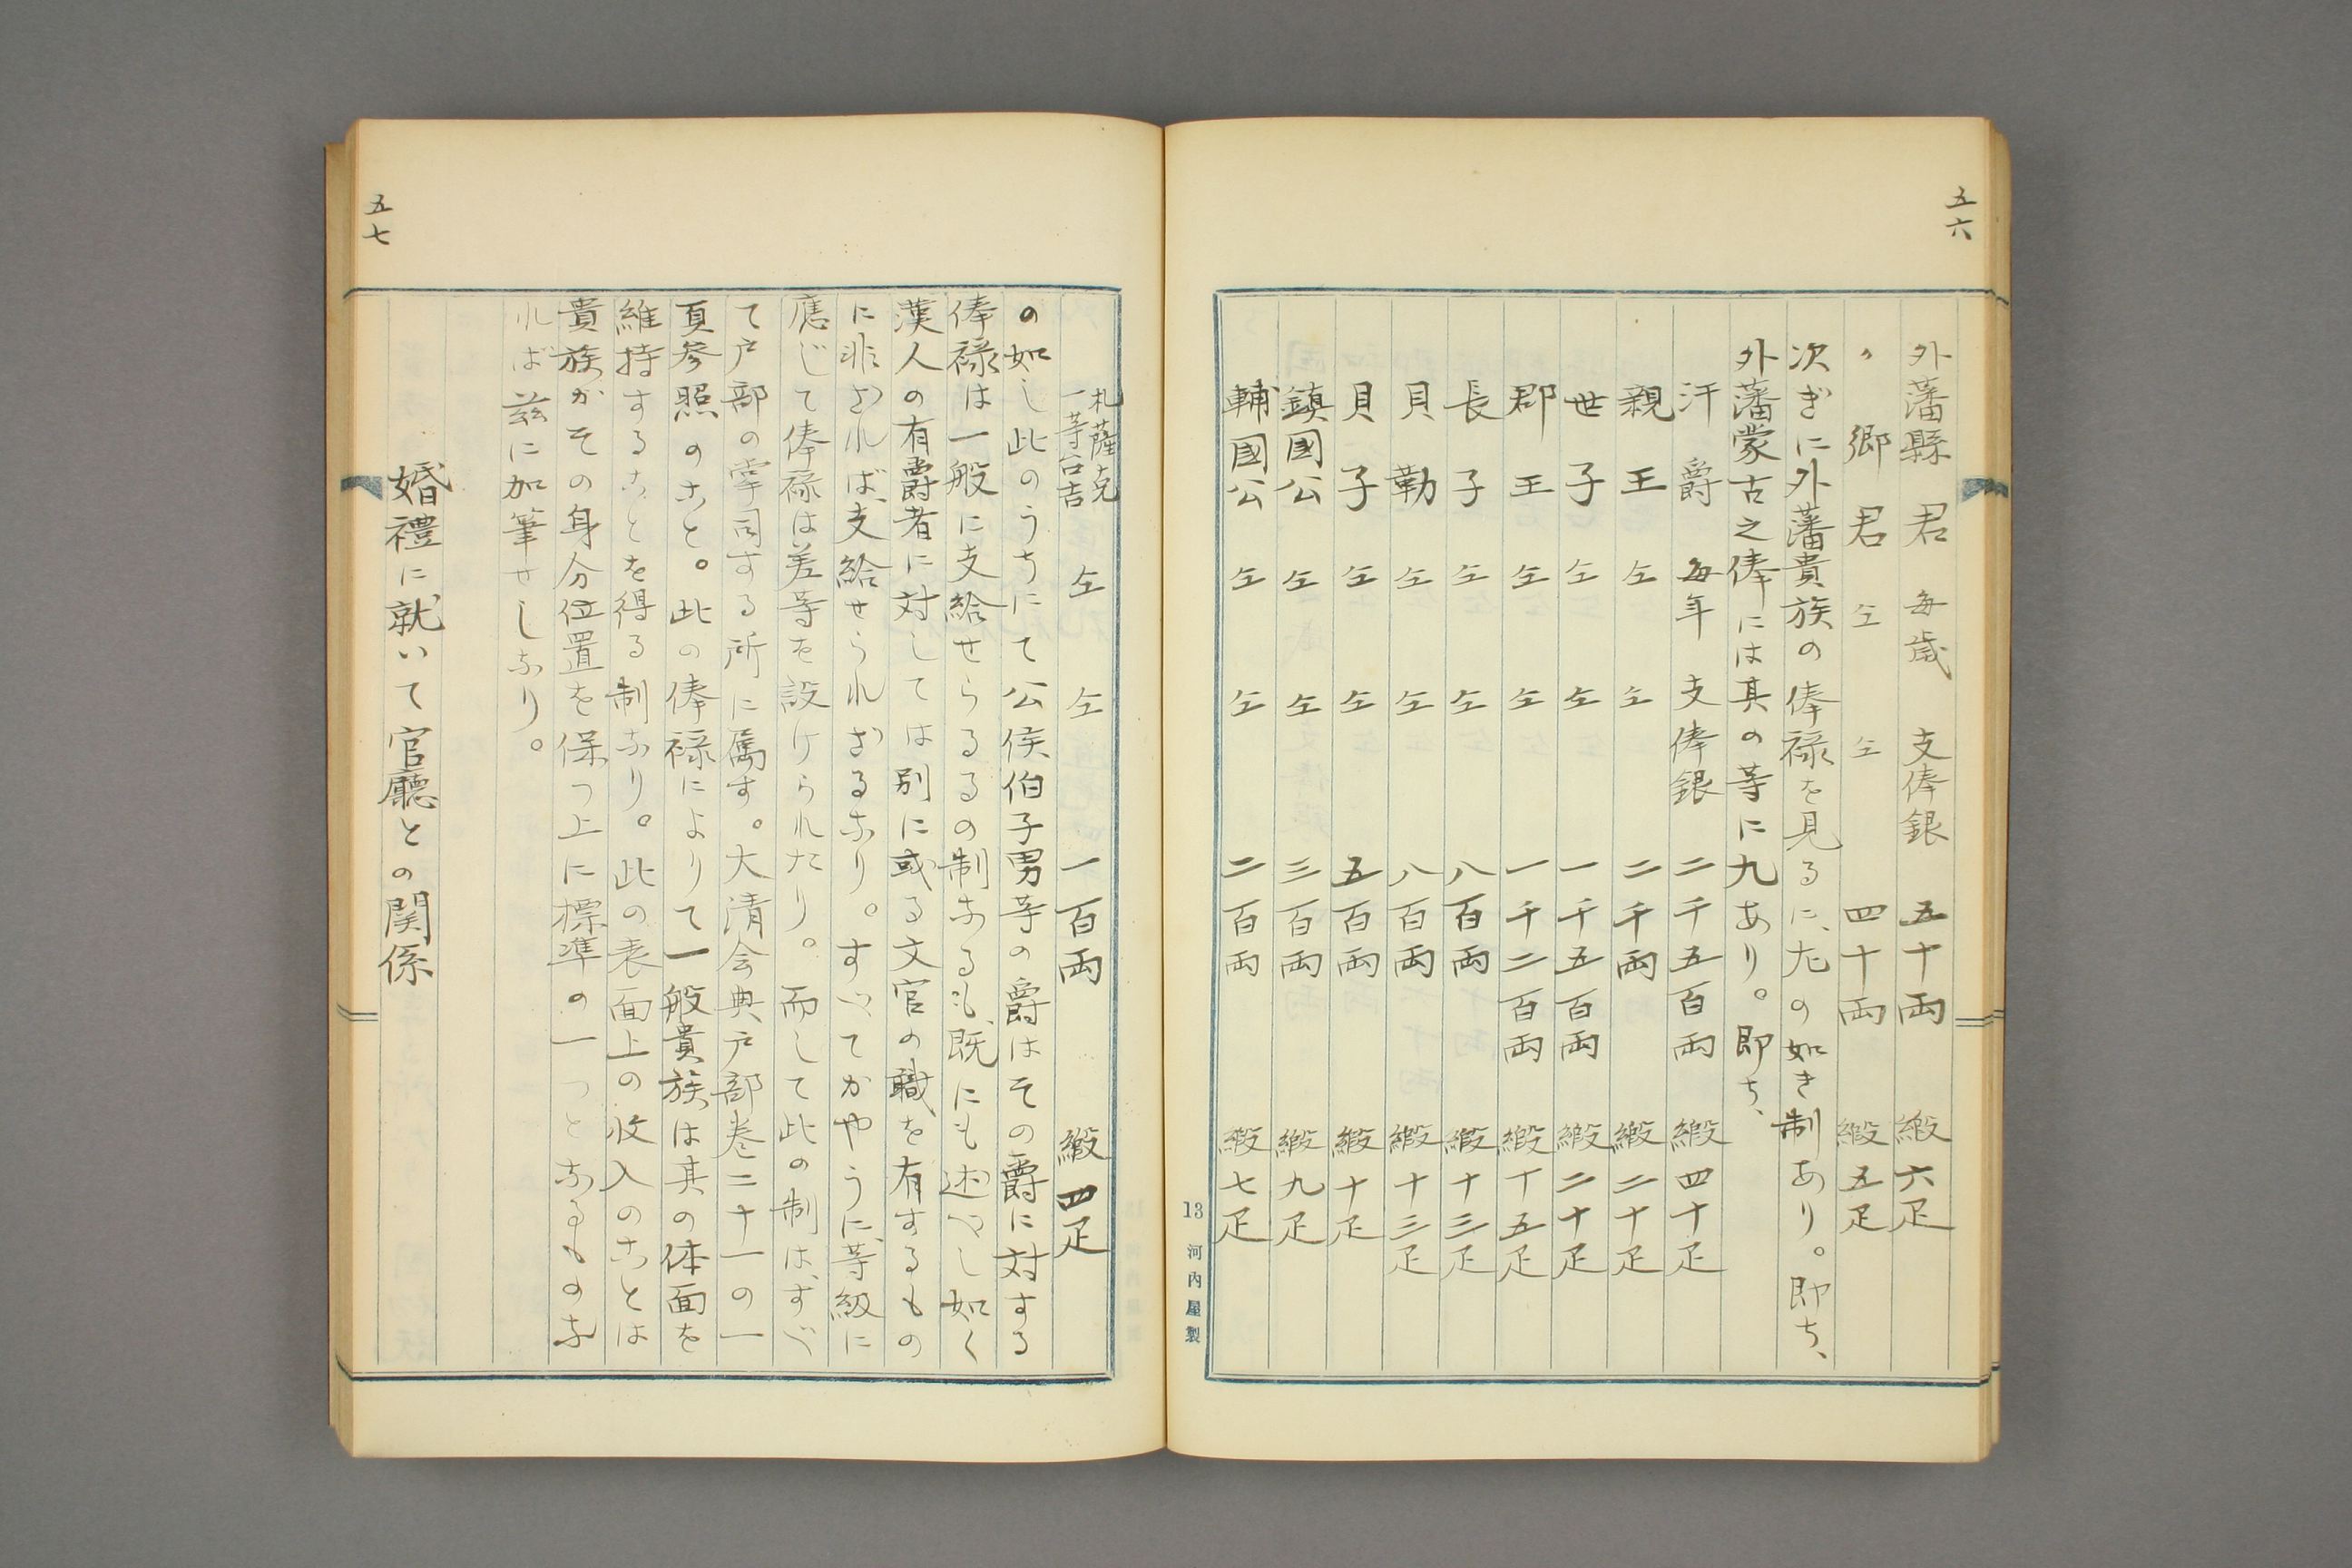 五六
外藩縣君 毎歳 支俸銀 五十両 緞六疋
〃 郷君 仝 仝 四十両 緞五疋
次ぎに外藩貴族の俸禄を見るに、尤の如き制あり。即ち、
外藩蒙古之俸には其の等に九あり。即ち、
汗爵 毎年 支俸銀 二千五百両 緞四十疋
親王 仝 仝 二千両 緞二十疋
世子 仝 仝 一千五百両 緞二十疋
郡王 仝 仝 一千二百両 緞十五疋
長子 仝 仝 八百両 緞十三疋
貝勒 仝 仝 八百両 緞十三疋
貝子 仝 仝 五百両 緞十疋
鎮國公 仝 仝 三百両 緞九疋
輔國公 仝 仝 二百両 緞七疋
13 河内屋製
五七
札薩克
一等台吉 仝 仝 一百両 緞四疋
の如し此のうちにて公侯伯子男等の爵はその爵に対する
俸禄は一般に支給せらるるの制あるも、既にも述べし如く
漢人の有爵者に対しては別に或る文官の職を有するもの
に非ざれば、支給せられざるなり。すべてかやうに、等級に
應じて俸禄は差等を設けられたり。而して此の制は、すべ
て戸部の掌司する所に属す。大清会典戸部巻二十一の一
頁参照のこと。此の俸禄によりて一般貴族は其の体面を
維持することを得る制なり。此の表面上の收入のことは
貴族がその身分位置を保つ上に標準の一つとなるものな
れば茲に加筆せしなり。
婚禮に就いて官廳との関係